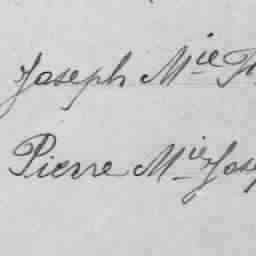 Joseph Mie
Pierre Mie Jose